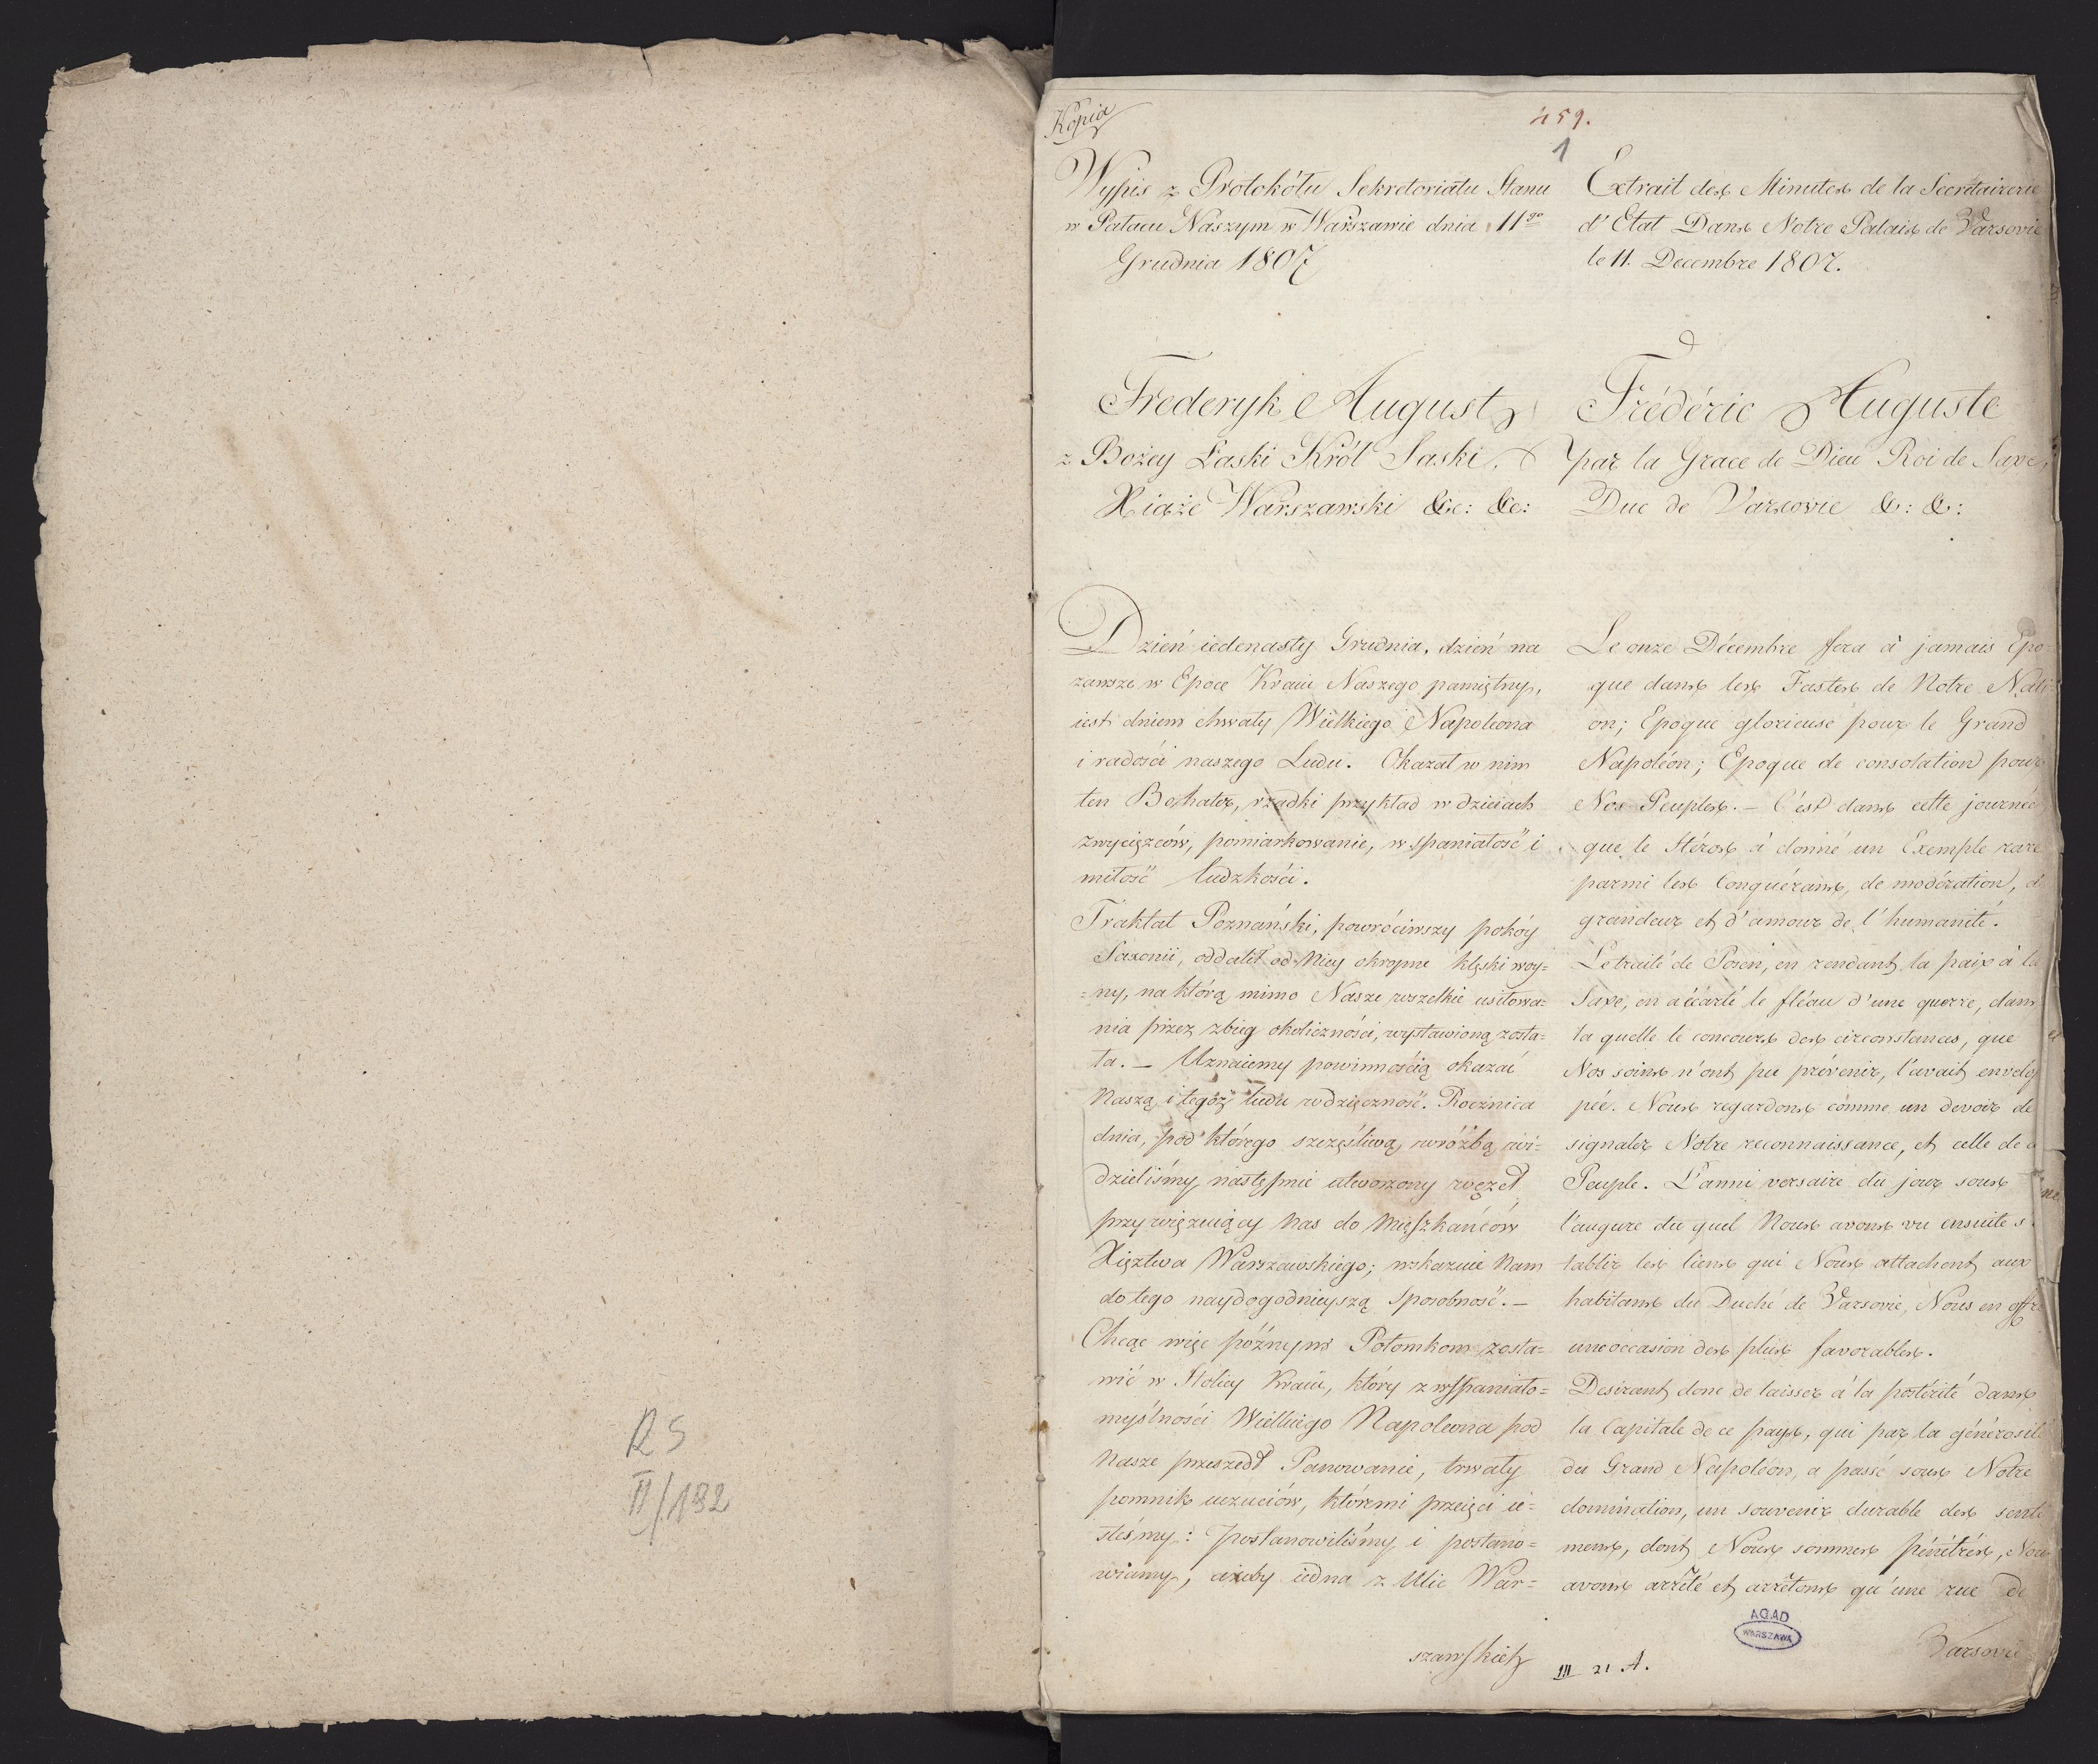 RS
II/192
Kopia
459.
1
Wypis z Protokółu Sekretoriatu Stanu
w Pałacu Naszym w Warszawie dnia 11go
Grudnia 1807
Frederyk August
z Bożey Łaski Król Saski,
Xiąże Warszawski &c: &c:
Dzień iedenasty Grudnia, dzień na
zawsze w Epoce Kraiu Naszego pamiętny,
iest dniem chwały Wielkiego Napoleona
i radości naszego Ludu. Okazał w nim
ten Bohater, rzadki przykład w dzieiach
zwycięzców, pomiarkowanie, wspaniałość i
miłość ludzkości.
Traktat Poznański, powróciwszy pokóy
Saxonii, oddalił od Niey okropne klęski woy=
=ny, na którą mimo Nasze wszelkie usiłowa=
nia przez zbieg okoliczności, wystawioną zosta=
ła. — Uznaiemy powinnością okazać
Naszą i tegóż ludu wdzięczność. Rocznica
dnia, pod którego szczęśliwą wróżbą wi=
dzieliśmy następnie utworzony węzeł
przywięzuiący Nas do Mięszkańców
Xięztwa Warszawskiego; wskazuie Nam
do tego naydogodnieyszą sposobność. —
Chcąc więc późnym Potomkom zosta=
wić w Stolicy Kraiu, który z wspaniało=
myślności Wielkiego Napoleona pod
Nasze przeszedł Panowanie, trwały
pomnik uczuciów, któremi przeięci ie=
steśmy: postanowiliśmy i postano=
wiamy, ażeby iedna z Ulic War=
szawskich
Extrait des Minutes de la Secrétairerie
d'Etat Dans Notre Palais de Varsovie
le 11. Decembre 1807.
Frédéric Auguste
par la Grace de Dieu Roi de Saxe,
Duc de Varsovie &: &:
Le onze Décembre fera à jamais Epo=
que dans les Fastes de Notre Nati=
on; Epoque glorieuse pour le Grand
Napoléon; Epoque de consolation pour
Nos Peuples. — C'est dans cette journée
que le Héros à donné un Exemple rare
parmi les Conquérans, de modération, d
grandeur et d'amour de l'humanité.
Le traité de Posen, en rendant la paix à la
Saxe, en a écarté le fléau d'une guerre, dans
la quelle le concours des circonstances, que
Nos soins n'ont pu prévenir, l'avait envelop
pée. Nous regardons comme un devoir de
signaler Notre reconnaissance, et celle de c
Peuple. L'anni versaire du jour sous
l'augure du quel Nous avons vu ensuite s
tablir les liens qui Nous attachent aux
habitans du Duché de Varsovie, Nous en offre
une occasion des plus favorables.
Desirant donc de laisser à la postérité dans
la Capitale de ce pays, qui par la générosité
du Grand Napoléon, a passé sous Notre
domination, un souvenir durable des senti
mens, dont Nous sommes pénétrés, Nous
avons arrêté et arrêtons qu'une rue de
Varsovie
AGAD
WARSZAWA
III 21 A.